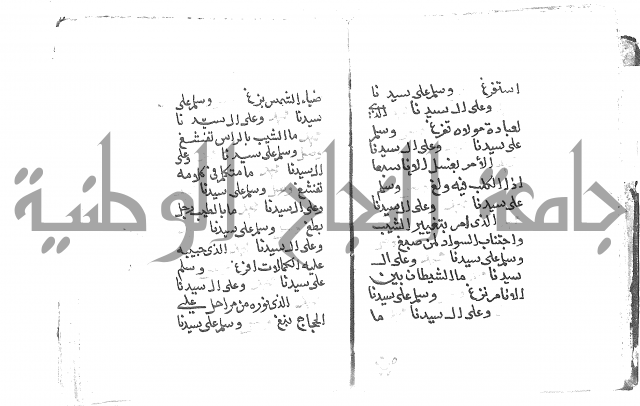 استفرغ وسلم على سيدنا
وعلى ال سيدنا الذي
لعبادة مولاه تفرغ وسلم
على سيدنا وعلى ال سيدنا
الامر بغسل الاناء سبعا
اذا الكلب فيه ولغ وسلم
على سيدنا وعلى ال سيدنا
الذي امر بتغيير الشيب
واجتناب السواد لمن صبغ
وسلم على سيدنا وعلى ال
سيدنا ما الشيطان بين
الانام نزغ وسلم على سيدنا
وعلى ال سيدنا ما
ضياء الشمس بزغ وسلم على
سيدنا وعلى ال سيدنا
ما الشيب بالراس تفشغ
وسلم على سيدنا وعلى
ال سيدنا ما متكلم في كلامه
تفشغ وسلم على سيدنا
وعلى ال سيدنا ما
بلغ وسلم على سيدنا
وعلى ال سيدنا الذي
عليه الكمالات افرغ وسلم
على سيدنا وعلى ال سيدنا
الذي نوره من مراحل على
الحجاج نبغ وسلم على سيدنا
جامعة النجاح الوطنية